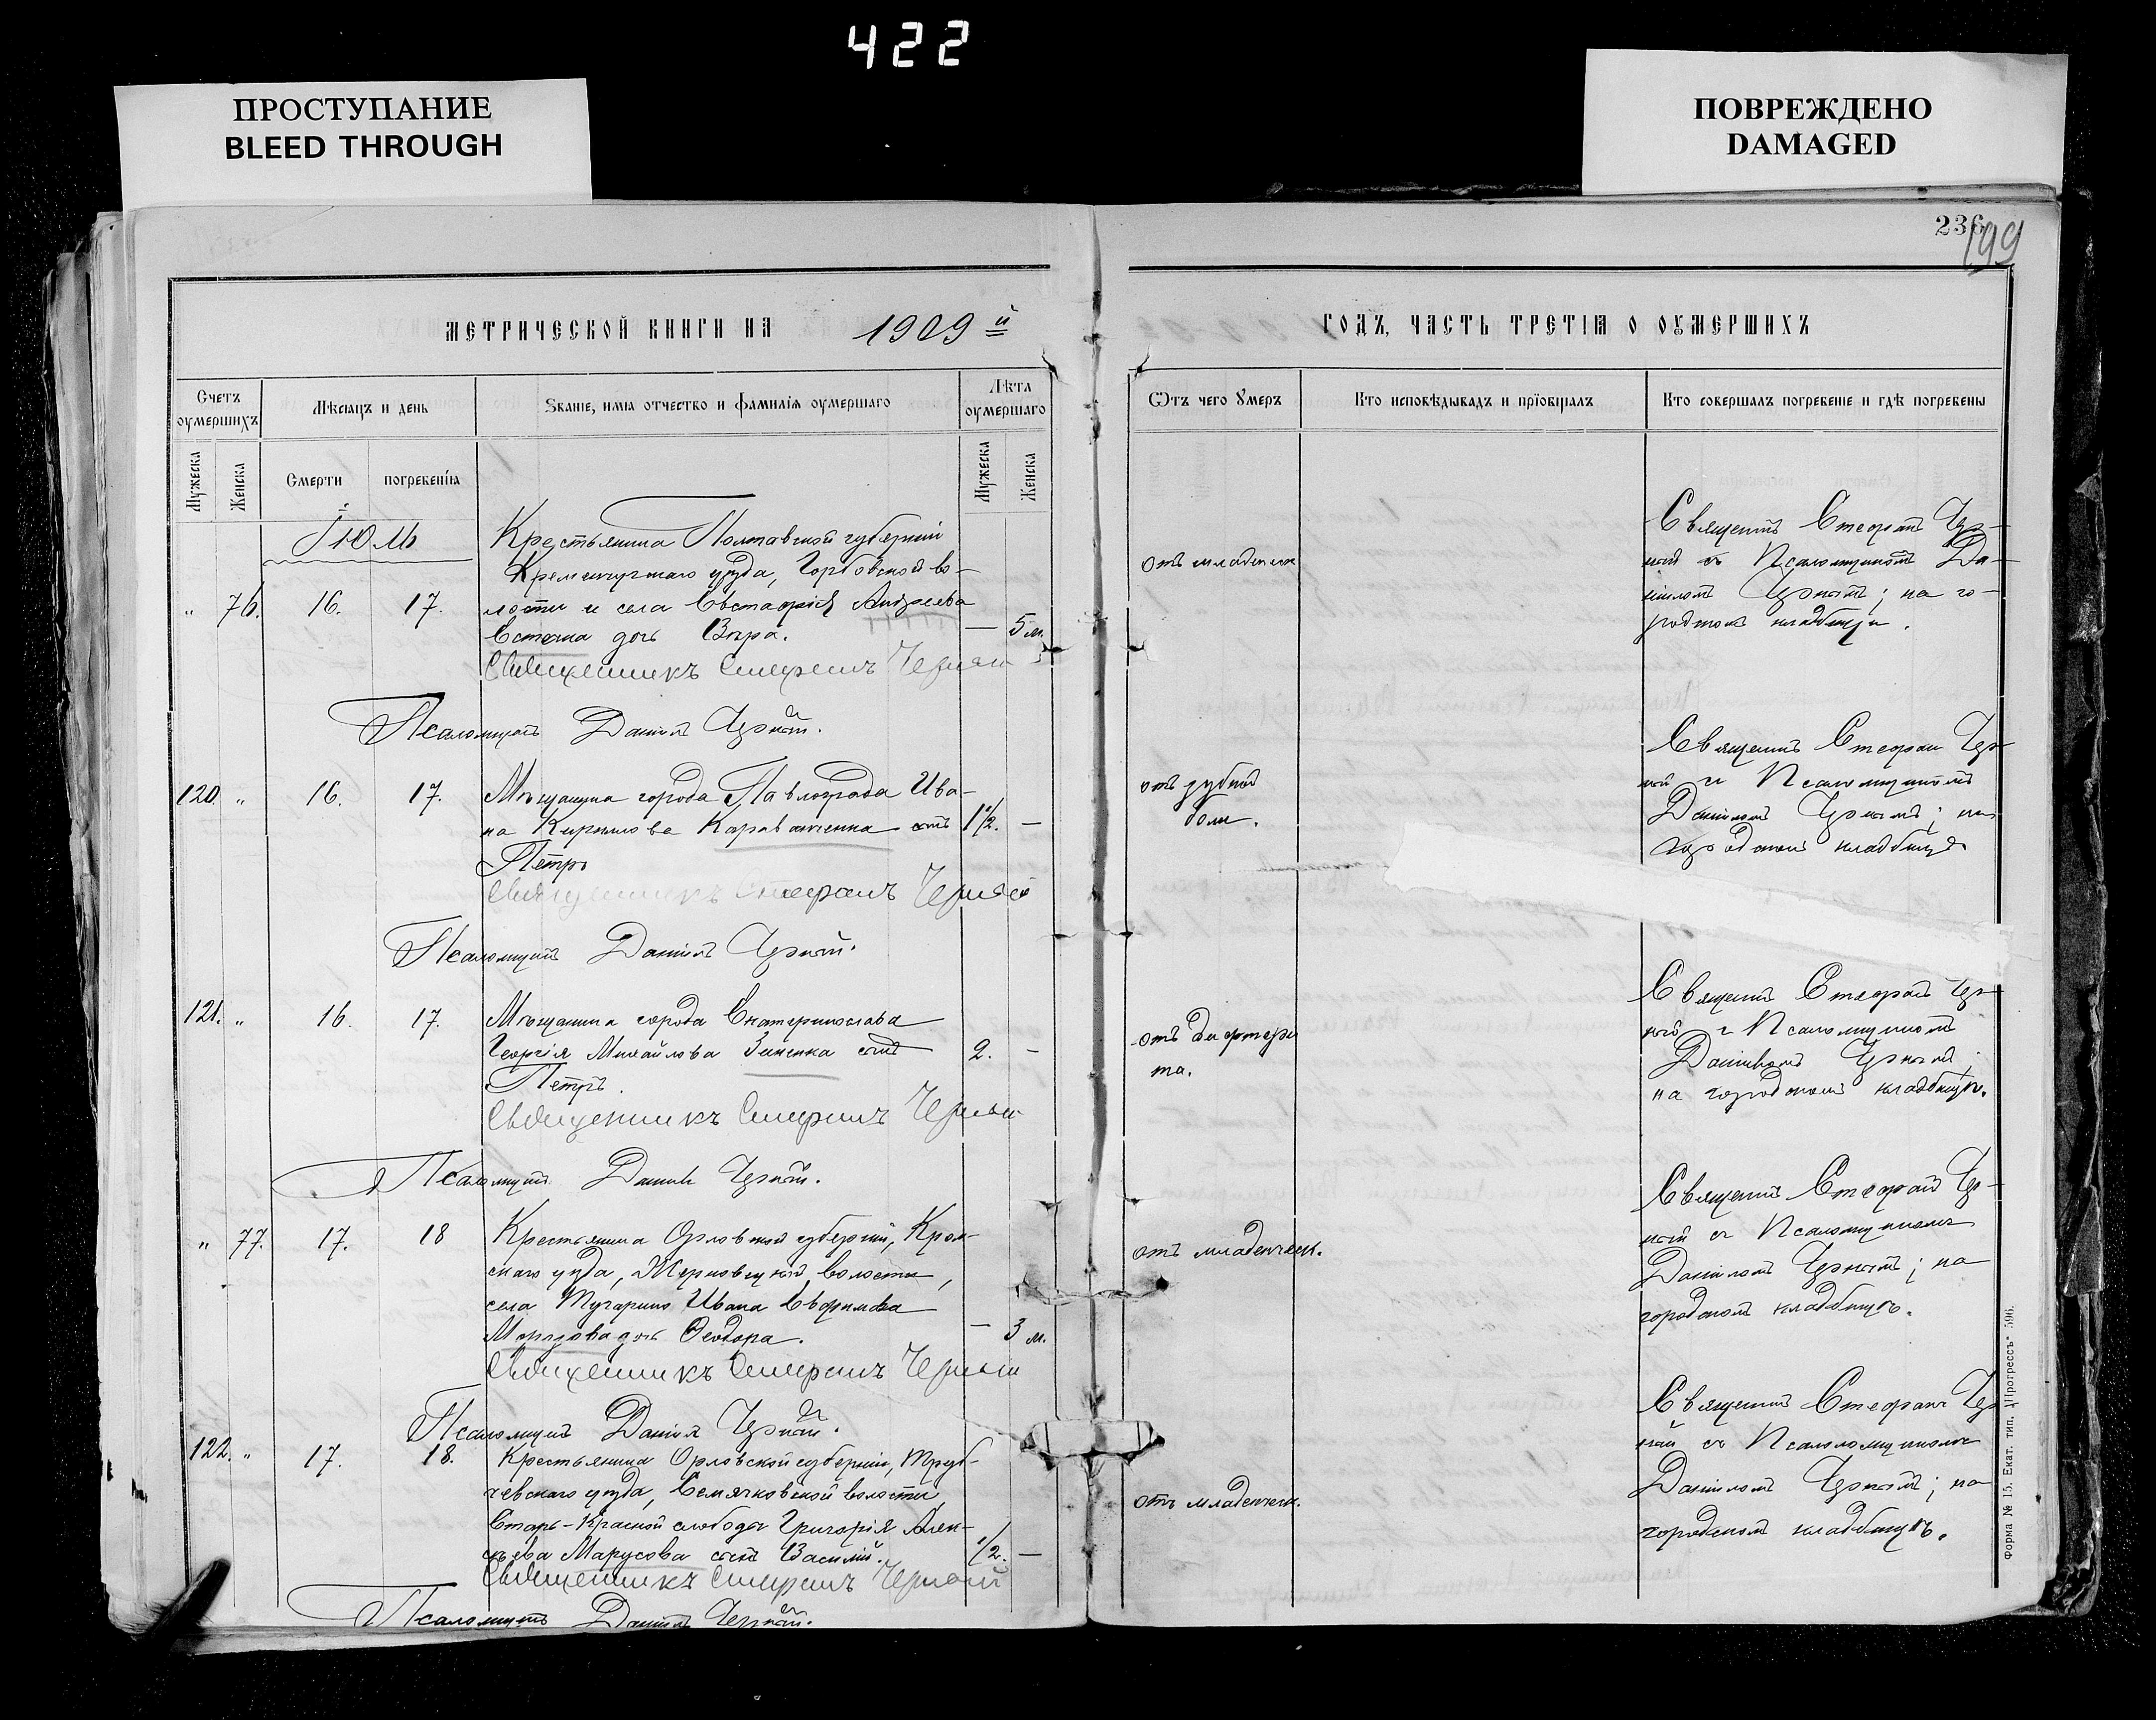 422
ПРОСТУПАНИЕ
BLEED THROUGH
ПОВРЕЖДЕНО
DAMAGED
236
199
МЕТРИЧЕСКОЙ КНИГИ НА 1909 й
ГОДЪ, ЧАСТЬ ТРЕТІѦ О ОУМЕРШИХЪ
Счетъ оумершихъ
Мѣсѧцъ и день
Званіе, имѧ отчество и фамилія оумершаго
Лѣта оумершаго
Мужеска
Женска
Смерти
погребенія
Мужеска
Женска
Ѿтъ чего Умеръ
Кто исповѣдывалъ и пріобщалъ
Кто совершалъ погребеніе и гдѣ погребены
Іюль
Крестьянина Полтавской губерніи
Кременчугскаго уѣзда, во-
" 76. 16. 17. лости и села Евстафія Андреева
дочь Вѣра. — 5 м.
Священникъ Стефанъ Черный
Псаломщикъ Даніилъ Чорный.
отъ младенческ
Священникъ Стефанъ Чор-
ный съ Псаломщикомъ Да-
ніиломъ Чорнымъ; на го-
родскомъ кладбищѣ.
120. " 16. 17. Мѣщанина города Павлограда Ива-
на Кириллова Караванченка сынъ 1 1/2. —
Петръ
Священникъ Стефанъ Черный
Псаломщикъ Даніилъ Чорный.
отъ зубной
боли.
Священникъ Стефанъ Чор-
ный съ Псаломщикомъ
Даніиломъ Чорнымъ; на
городскомъ кладбищѣ
121. " 16. 17. Мѣщанина города Екатеринослава
Георгія Михайлова Зиненка сынъ 2. —
Петръ.
Священникъ Стефанъ Черный
Псаломщикъ Даніилъ Чорный.
отъ дифтери
та.
Священникъ Стефанъ Чор-
ный съ Псаломщикомъ
Даніиломъ Чорнымъ;
на городскомъ кладбищѣ.
" 77. 17. 18 Крестьянина Орловской губерніи, Кром-
скаго уѣзда, волости,
села Ивана Евфимова
Морозова дочь Ѳеодора. — 3 м.
Священникъ Стефанъ Черный
Псаломщикъ Даніилъ Чорный.
отъ младенческ.
Священникъ Стефанъ Чор-
ный съ Псаломщикомъ
Даніиломъ Чорнымъ; на
городскомъ кладбищѣ.
122. " 17. 18. Крестьянина Орловской губерніи, Труб-
чевскаго уѣзда, Семячковской волости,
Старь-Красной слободы Григорія Алек-
сѣева Марусова сынъ Василій. 1/2. —
Священникъ Стефанъ Черный
Псаломщикъ Даніилъ Чорный.
отъ младенческ.
Священникъ Стефанъ Чор
ный съ Псаломщикомъ
Даніиломъ Чорнымъ; на
городскомъ кладбищѣ.
Форма № 15. Екат. тип. „Прогрессъ" 596.